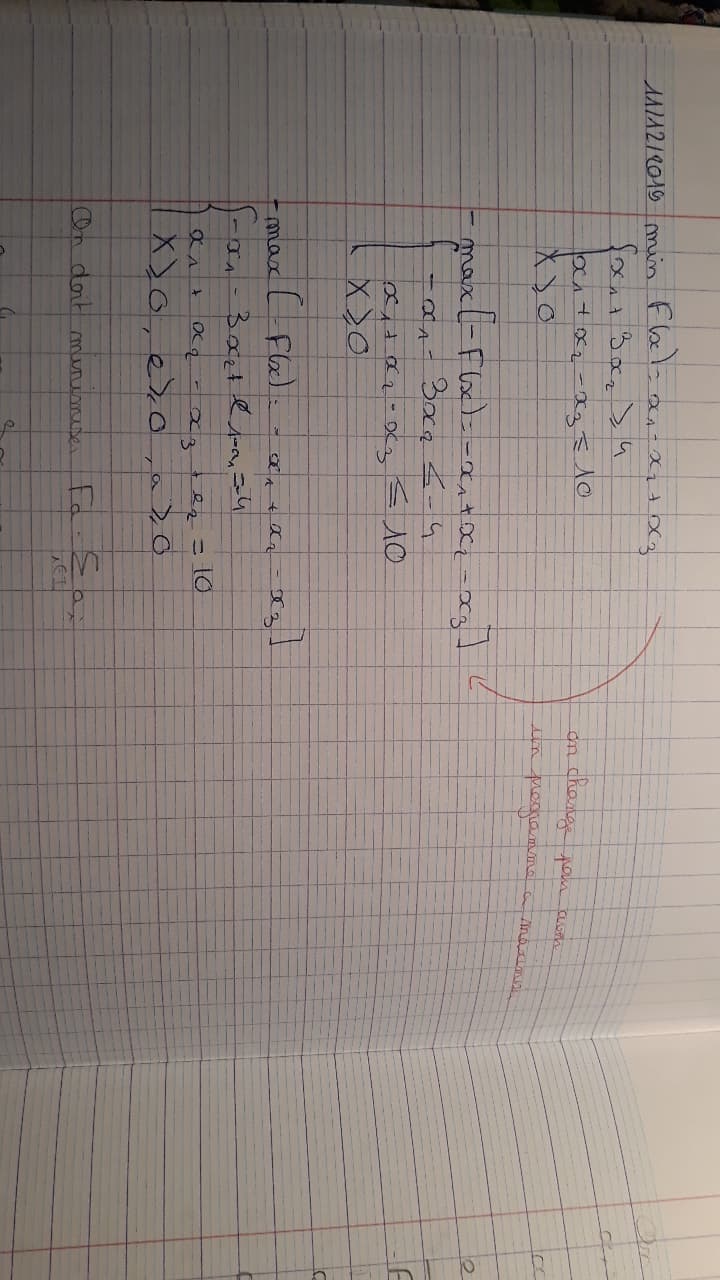 11/12/2019 min F(x) = x₁ - x₂ + x₃
{ x₁ + 3x₂ ≥ 4
x₁ + x₂ - x₃ ≤ 10
X ≥ 0
on change pour avoir
un programme a maximi
- max [- F(x) = - x₁ + x₂ - x₃]
{ - x₁ - 3x₂ ≤ - 4
x₁ + x₂ - x₃ ≤ 10
X ≥ 0
- max [ - F(x) = - x₁ + x₂ - x₃ ]
{ - x₁ - 3x₂ + e₁ - a₁ = -4
x₁ + x₂ - x₃ + e₂ = 10
X ≥ 0, e ≥ 0, a ≥ 0
On doit minimiser Fa = Σ aᵢ
i∈I